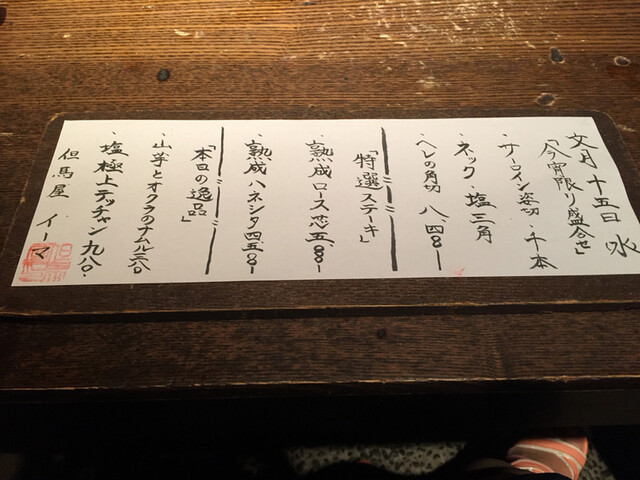 文月 十五日 水
「今宵限り盛合せ」
・サーロイン姿切・千本
・ネック・塩三角
・ヘレの角切 八、四〇〇ー
「特選ステーキ」
熟成ロース芯五、八〇〇ー
・熟成ハネシタ四、五〇〇ー
「本日の逸品」
・山芋とオクラのナムル三八〇
・塩極上テッチャン九八〇・
但馬屋 イーマ